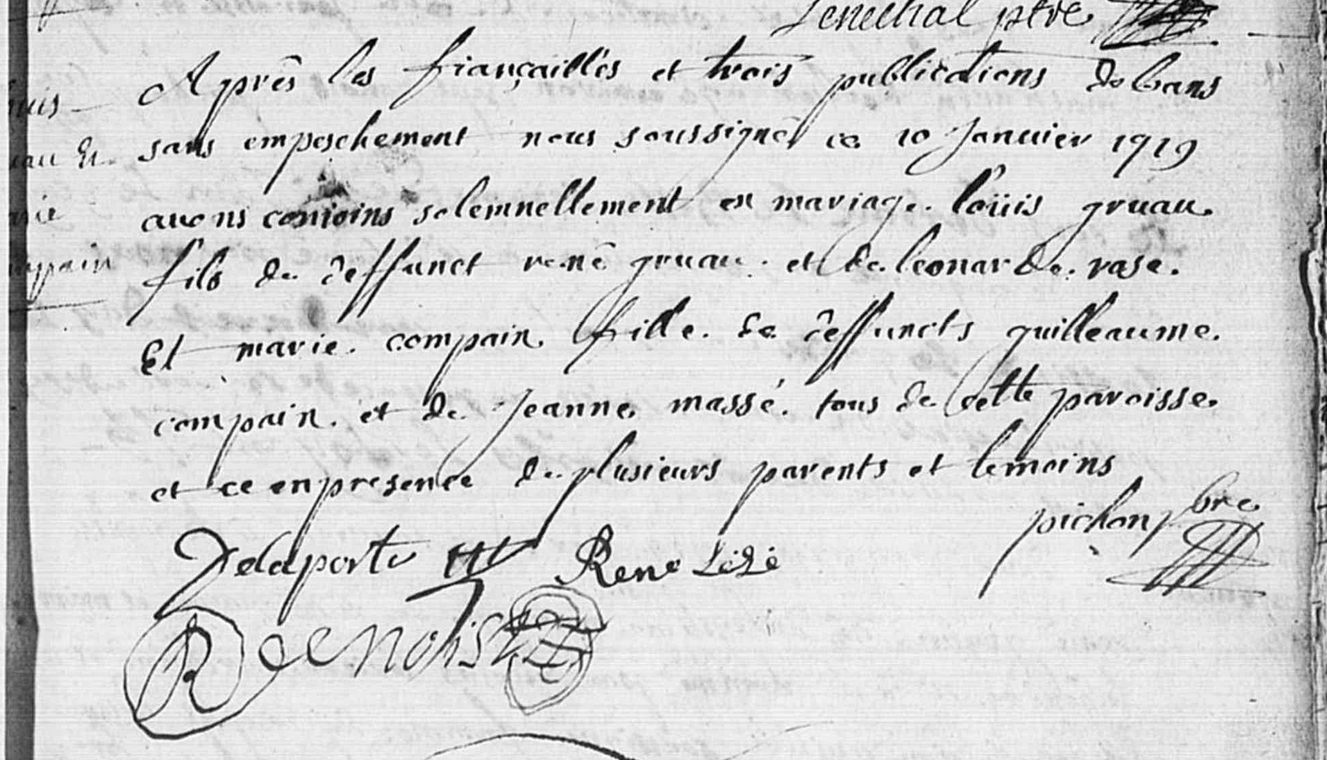 Senechal ptre
Aprês les fiançaillés et trois publications de bans
sans empeschement nous soussigné ce 10 Janvier 1719
auons conioins solemnellement en mariage. loüis gruau
fils de deffunct renê gruau. et de leonarde. rase.
Et marie. compain. fille. de deffuncts guilleaume.
compain. et de Jeanne massé. tous de cette paroisse.
et ce en presence de plusieurs parents et temoins
pichon pbre
Delaporte Rene
R
uis
au Et
rie
mpain